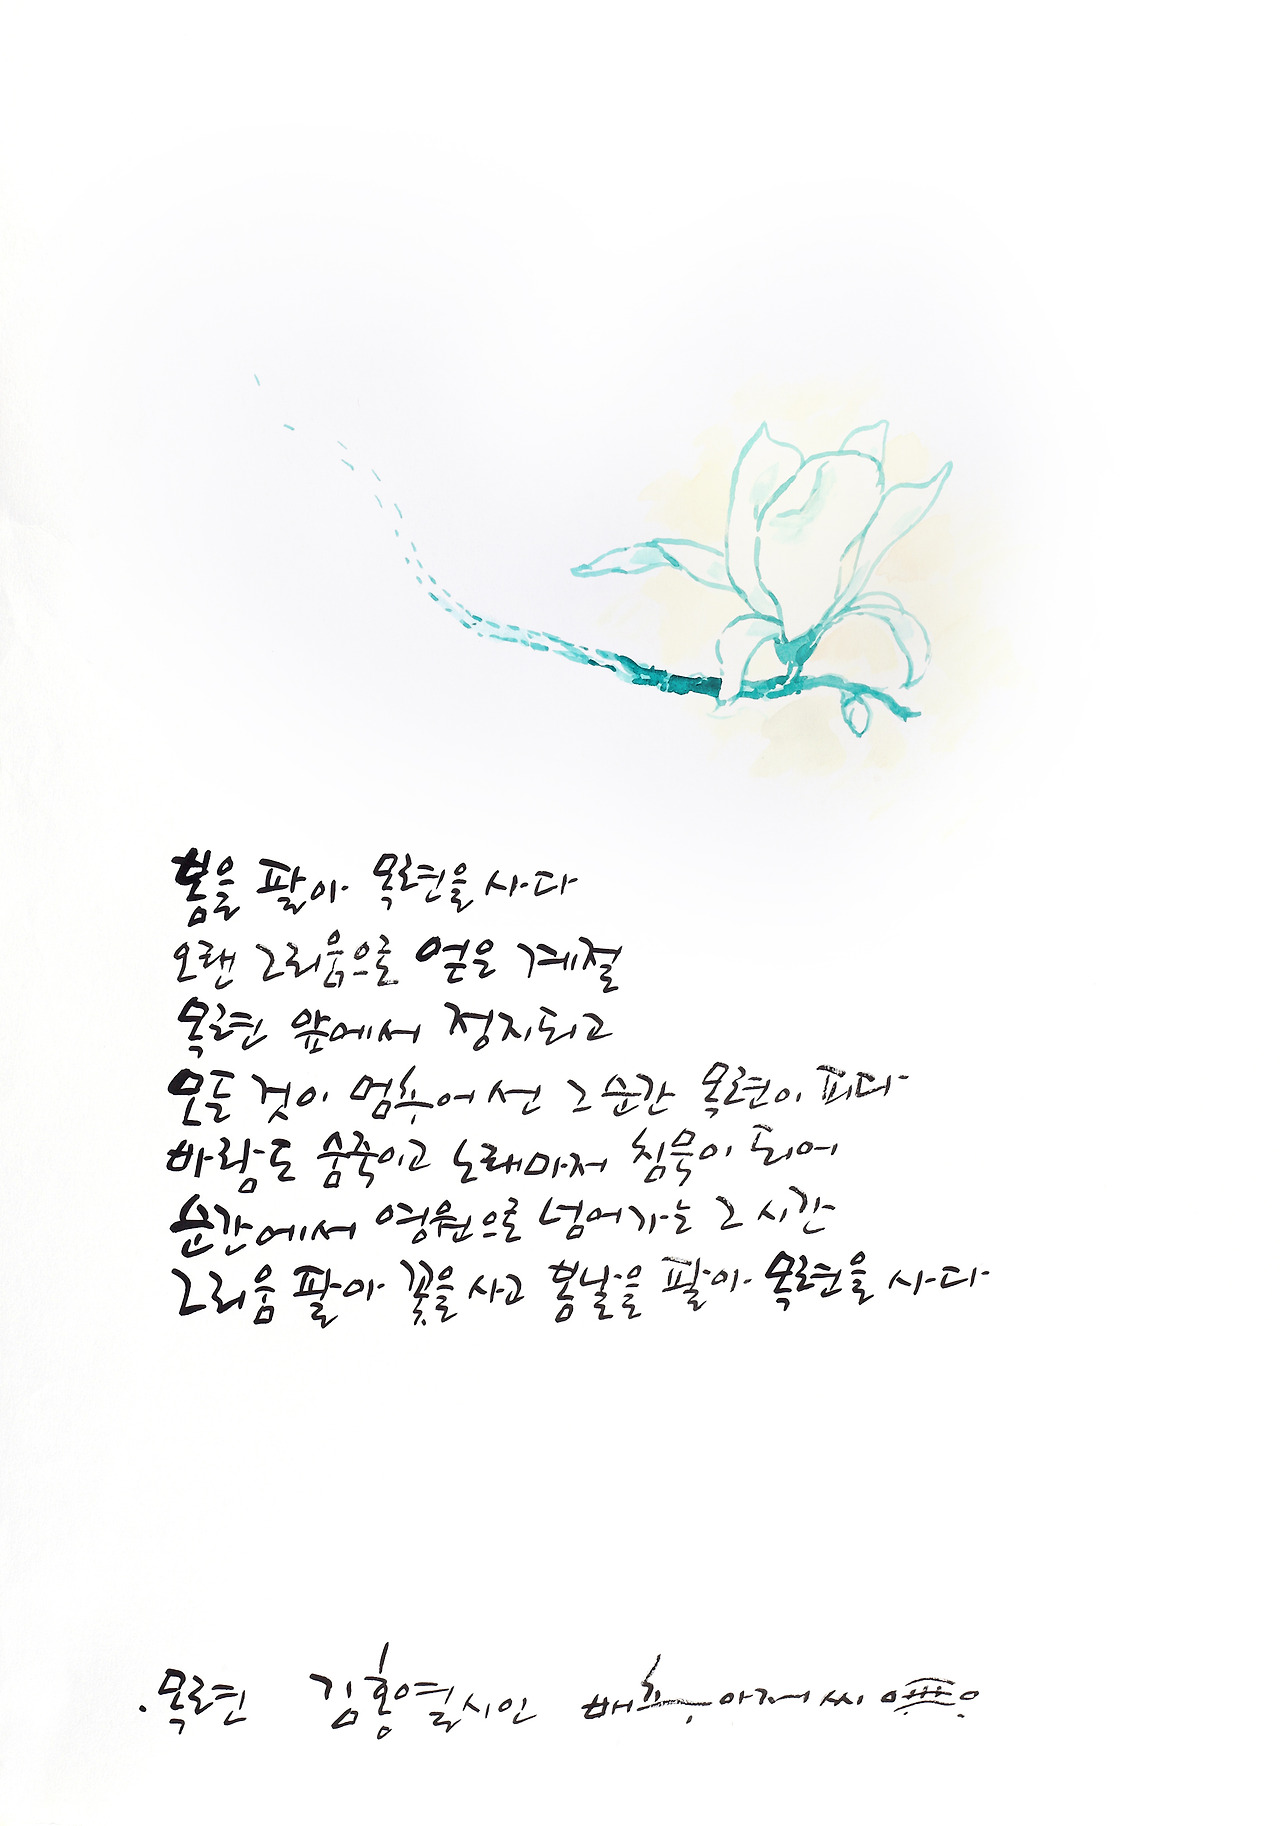 봄을 팔아 목련을 사다
오랜 그리움으로 얻은 계절
목련 앞에서 정지되고
모든 것이 멈추어 선 그 순간 목련이 피다
바람도 숨죽이고 노래마저 침묵이 되어
순간에서 영원으로 넘어가는 그 시간
그리움 팔아 꽃을 사고 봄날을 팔아 목련을 사다
.목련 김홍열시인 배추아재 씨